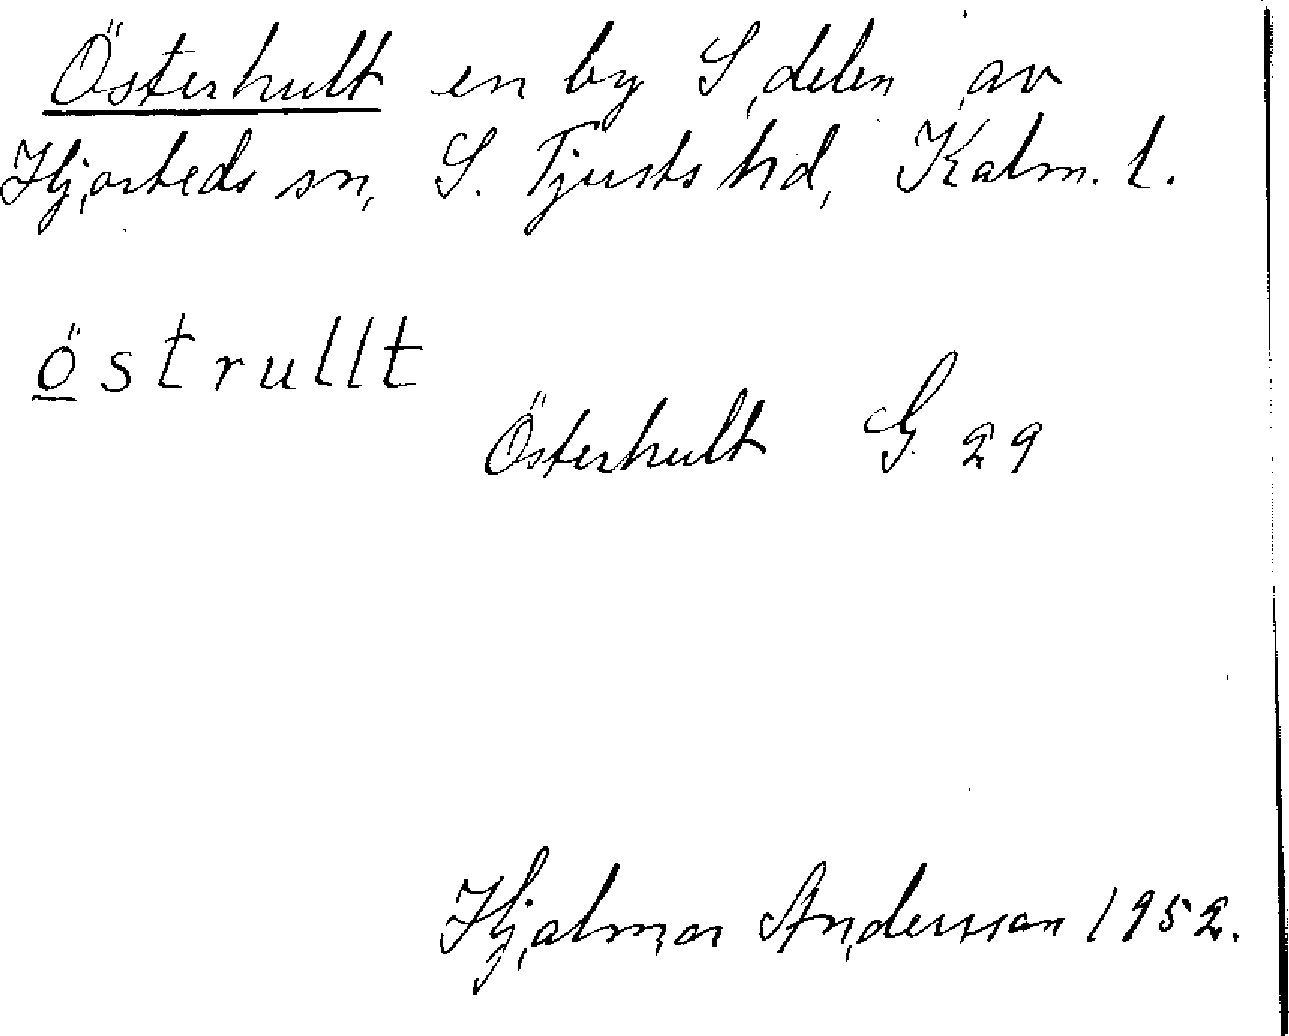 Österhult en by S delen av
Hjorteds sn, S. Tjusts hd, Kalm. l.
östrullt
Österhult G 29
Hjalmar Andersson 1952.